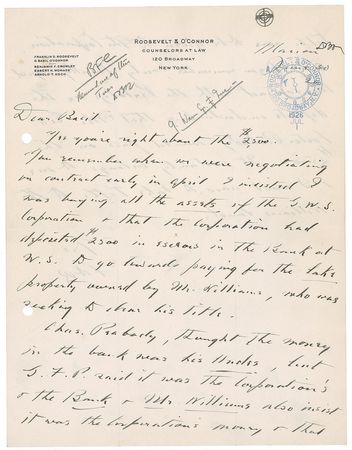 ROOSEVELT & O'CONNOR
COUNSELORS AT LAW
120 BROADWAY
NEW YORK
FRANKLIN D. ROOSEVELT
D. BASIL O'CONNOR
BENJAMIN F. CROWLEY
EARNEST A.
ARNOLD T. KOCH
1926
Dear Basil
Yes you're right about the $2500.
You remember when we were negotiating
on contract early in April I insisted I
was buying all the assets of the G.W.S.
Corporation & that the Corporation had
deposited $2500 in escrow in the Bank at
W.S. to go towards paying for the Lake
property owned by Mr. Williams, who was
seeking to clear his title.
Chas. Peabody, thought the money
in the bank was his Uncles, but
G.F.P. said it was the Corporation's
& the Bank & Mr. Williams also insist
it was the Corporations money & that